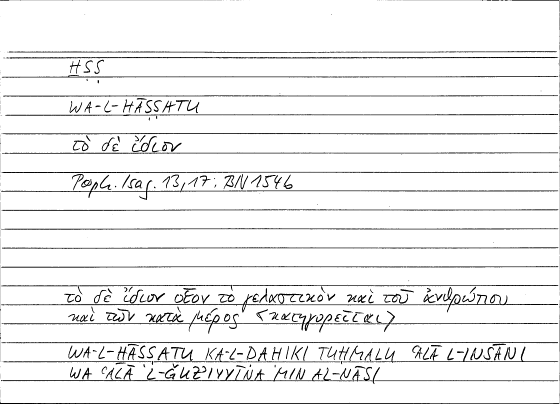 ḪṢṢ
WA-L-ḪĀṢṢATU
τὸ δὲ ἴδιον
Porph. Isag. 13,17; BN 154b
τὸ δὲ ἴδιον οἷον τὸ γελαστικὸν καὶ τοῦ ἀνθρώπου
καὶ τῶν κατὰ μέρος <κατηγορεῖται>
WA-L-ḪĀṢṢATU KA-L-ḌAḤIKI TUḤMALU ʿALĀ L-INSĀNI
WA ʿALĀ ʾL-ǦUZʾIYYĪNA MIN AL-NĀSI